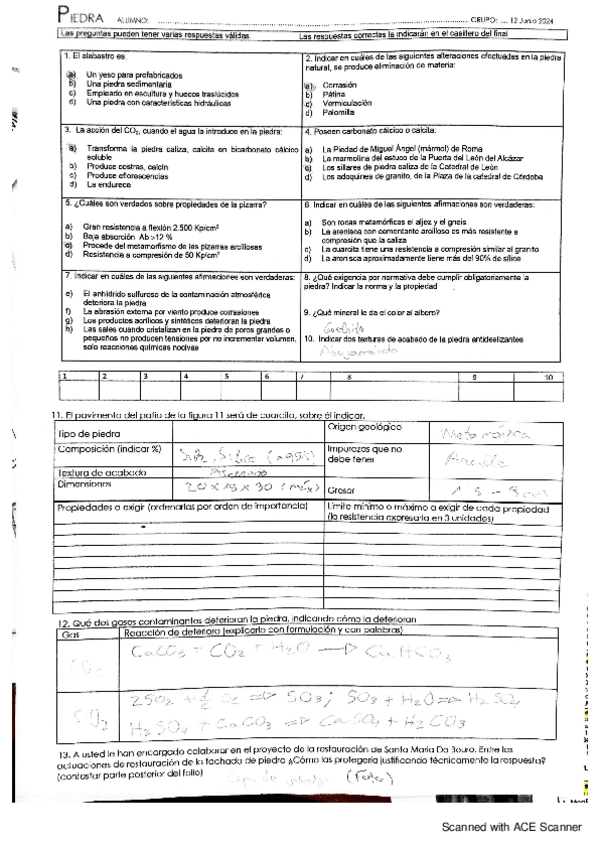 PIEDRA ALUMNO: GRUPO: .... 12 Junio 2024
Las preguntas pueden tener varias respuestas válidas Las respuestas correctas la indicarán en el casillero del final
1. El alabastro es.
a) Un yeso para prefabricados
b) Una piedra sedimentaria
c) Empleado en escultura y huecos traslúcidos
d) Una piedra con características hidráulicas
2. Indicar en cuáles de las siguientes alteraciones efectuadas en la piedra
natural, se produce eliminación de materia:
a) Corrasión
b) Pátina
c) Vermiculación
d) Palomilla
3. La acción del CO2, cuando el agua la introduce en la piedra:
a) Transforma la piedra caliza, calcita en bicarbonato cálcico
soluble
b) Produce costras, calcín
c) Produce eflorescencias
d) La endurece
4. Poseen carbonato cálcico o calcita:
a) La Piedad de Miguel Ángel (mármol) de Roma
b) La marmolina del estuco de la Puerta del León del Alcázar
c) Los sillares de piedra caliza de la Catedral de León
d) Los adoquines de granito, de la Plaza de la catedral de Córdoba
5. ¿Cuáles son verdades sobre propiedades de la pizarra?
a) Gran resistencia a flexión 2.500 Kp/cm²
b) Baja absorción Ab >12 %
c) Procede del metamorfismo de las pizarras arcillosas
d) Resistencia a compresión de 50 Kp/cm²
6. Indicar en cuáles de las siguientes afirmaciones son verdaderas:
a) Son rocas metamórficas el aljez y el gneis
b) La arenisca con cementante arcilloso es más resistente a
compresión que la caliza
c) La cuarcita tiene una resistencia a compresión similar al granito
d) La arenisca aproximadamente tiene más del 90% de sílice
7. Indicar en cuáles de las siguientes afirmaciones son verdaderas:
e) El anhídrido sulfuroso de la contaminación atmosférica
deteriora la piedra
f) La abrasión externa por viento produce corrasiones
g) Los productos acrílicos y sintéticos deterioran la piedra
h) Las sales cuando cristalizan en la piedra de poros grandes o
pequeños no producen tensiones por no incrementar volumen,
solo reacciones químicas nocivas
8. ¿Qué exigencia por normativa debe cumplir obligatoriamente la
piedra? Indicar la norma y la propiedad
9. ¿Qué mineral le da el color al albero?
Goethita
10. Indicar dos texturas de acabado de la piedra antideslizantes
1 2 3 4 5 6 7 8 9 10
11. El pavimento del patio de la figura 11 será de cuarcita, sobre él indicar.
Tipo de piedra
Origen geológico Metamórfica
Composición (indicar %) Sílice (>95%)
Impurezas que no
debe tener Arcilla
Textura de acabado
Dimensiones 20 x 15 x 30 (máx)
Grosor
Propiedades a exigir (ordenarlas por orden de importancia)
Límite mínimo o máximo a exigir de cada propiedad
(la resistencia expresarla en 3 unidades)
12. Qué dos gases contaminantes deterioran la piedra, indicando cómo la deterioran
Gas Reacción de deterioro (explicarlo con formulación y con palabras)
CO2 CaCO3 + CO2 + H2O → CaHCO3
SO2 2SO2 + ½ O2 ⇒ SO3; SO3 + H2O ⇒ H2SO4
H2SO4 + CaCO3 ⇒ CaSO4 + H2CO3
13. A usted le han encargado colaborar en el proyecto de la restauración de Santa Maria Do Bouro. Entre las
actuaciones de restauración de la fachada de piedra ¿Cómo las protegería justificando técnicamente la respuesta?
(contestar parte posterior del folio)
Scanned with ACE Scanner